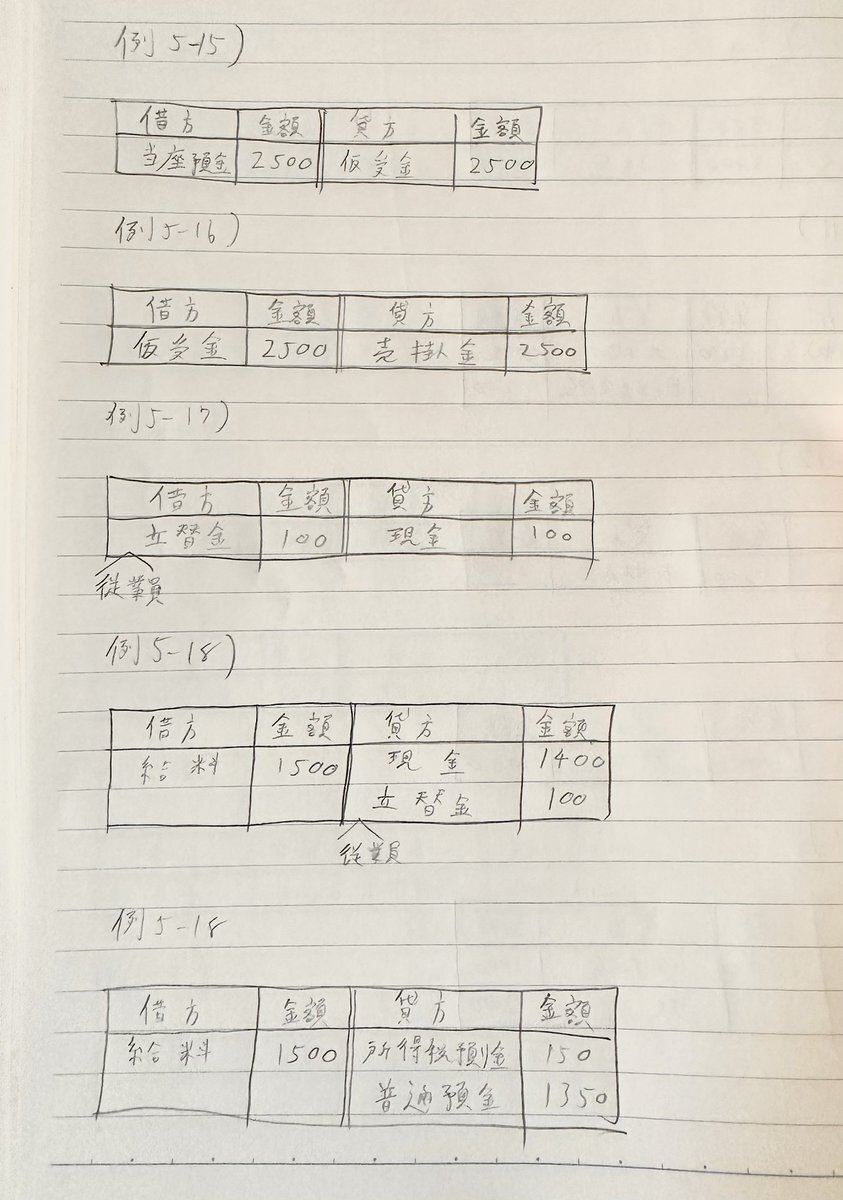 例 5-15)
借方 金額 貸方 金額
当座預金 2500 仮受金 2500
例 5-16)
借方 金額 貸方 金額
仮受金 2500 売掛金 2500
例 5-17)
借方 金額 貸方 金額
立替金 100 現金 100
従業員
例 5-18)
借方 金額 貸方 金額
給料 1500 現金 1400
立替金 100
従業員
例 5-18
借方 金額 貸方 金額
給料 1500 所得税預り金 150
普通預金 1350